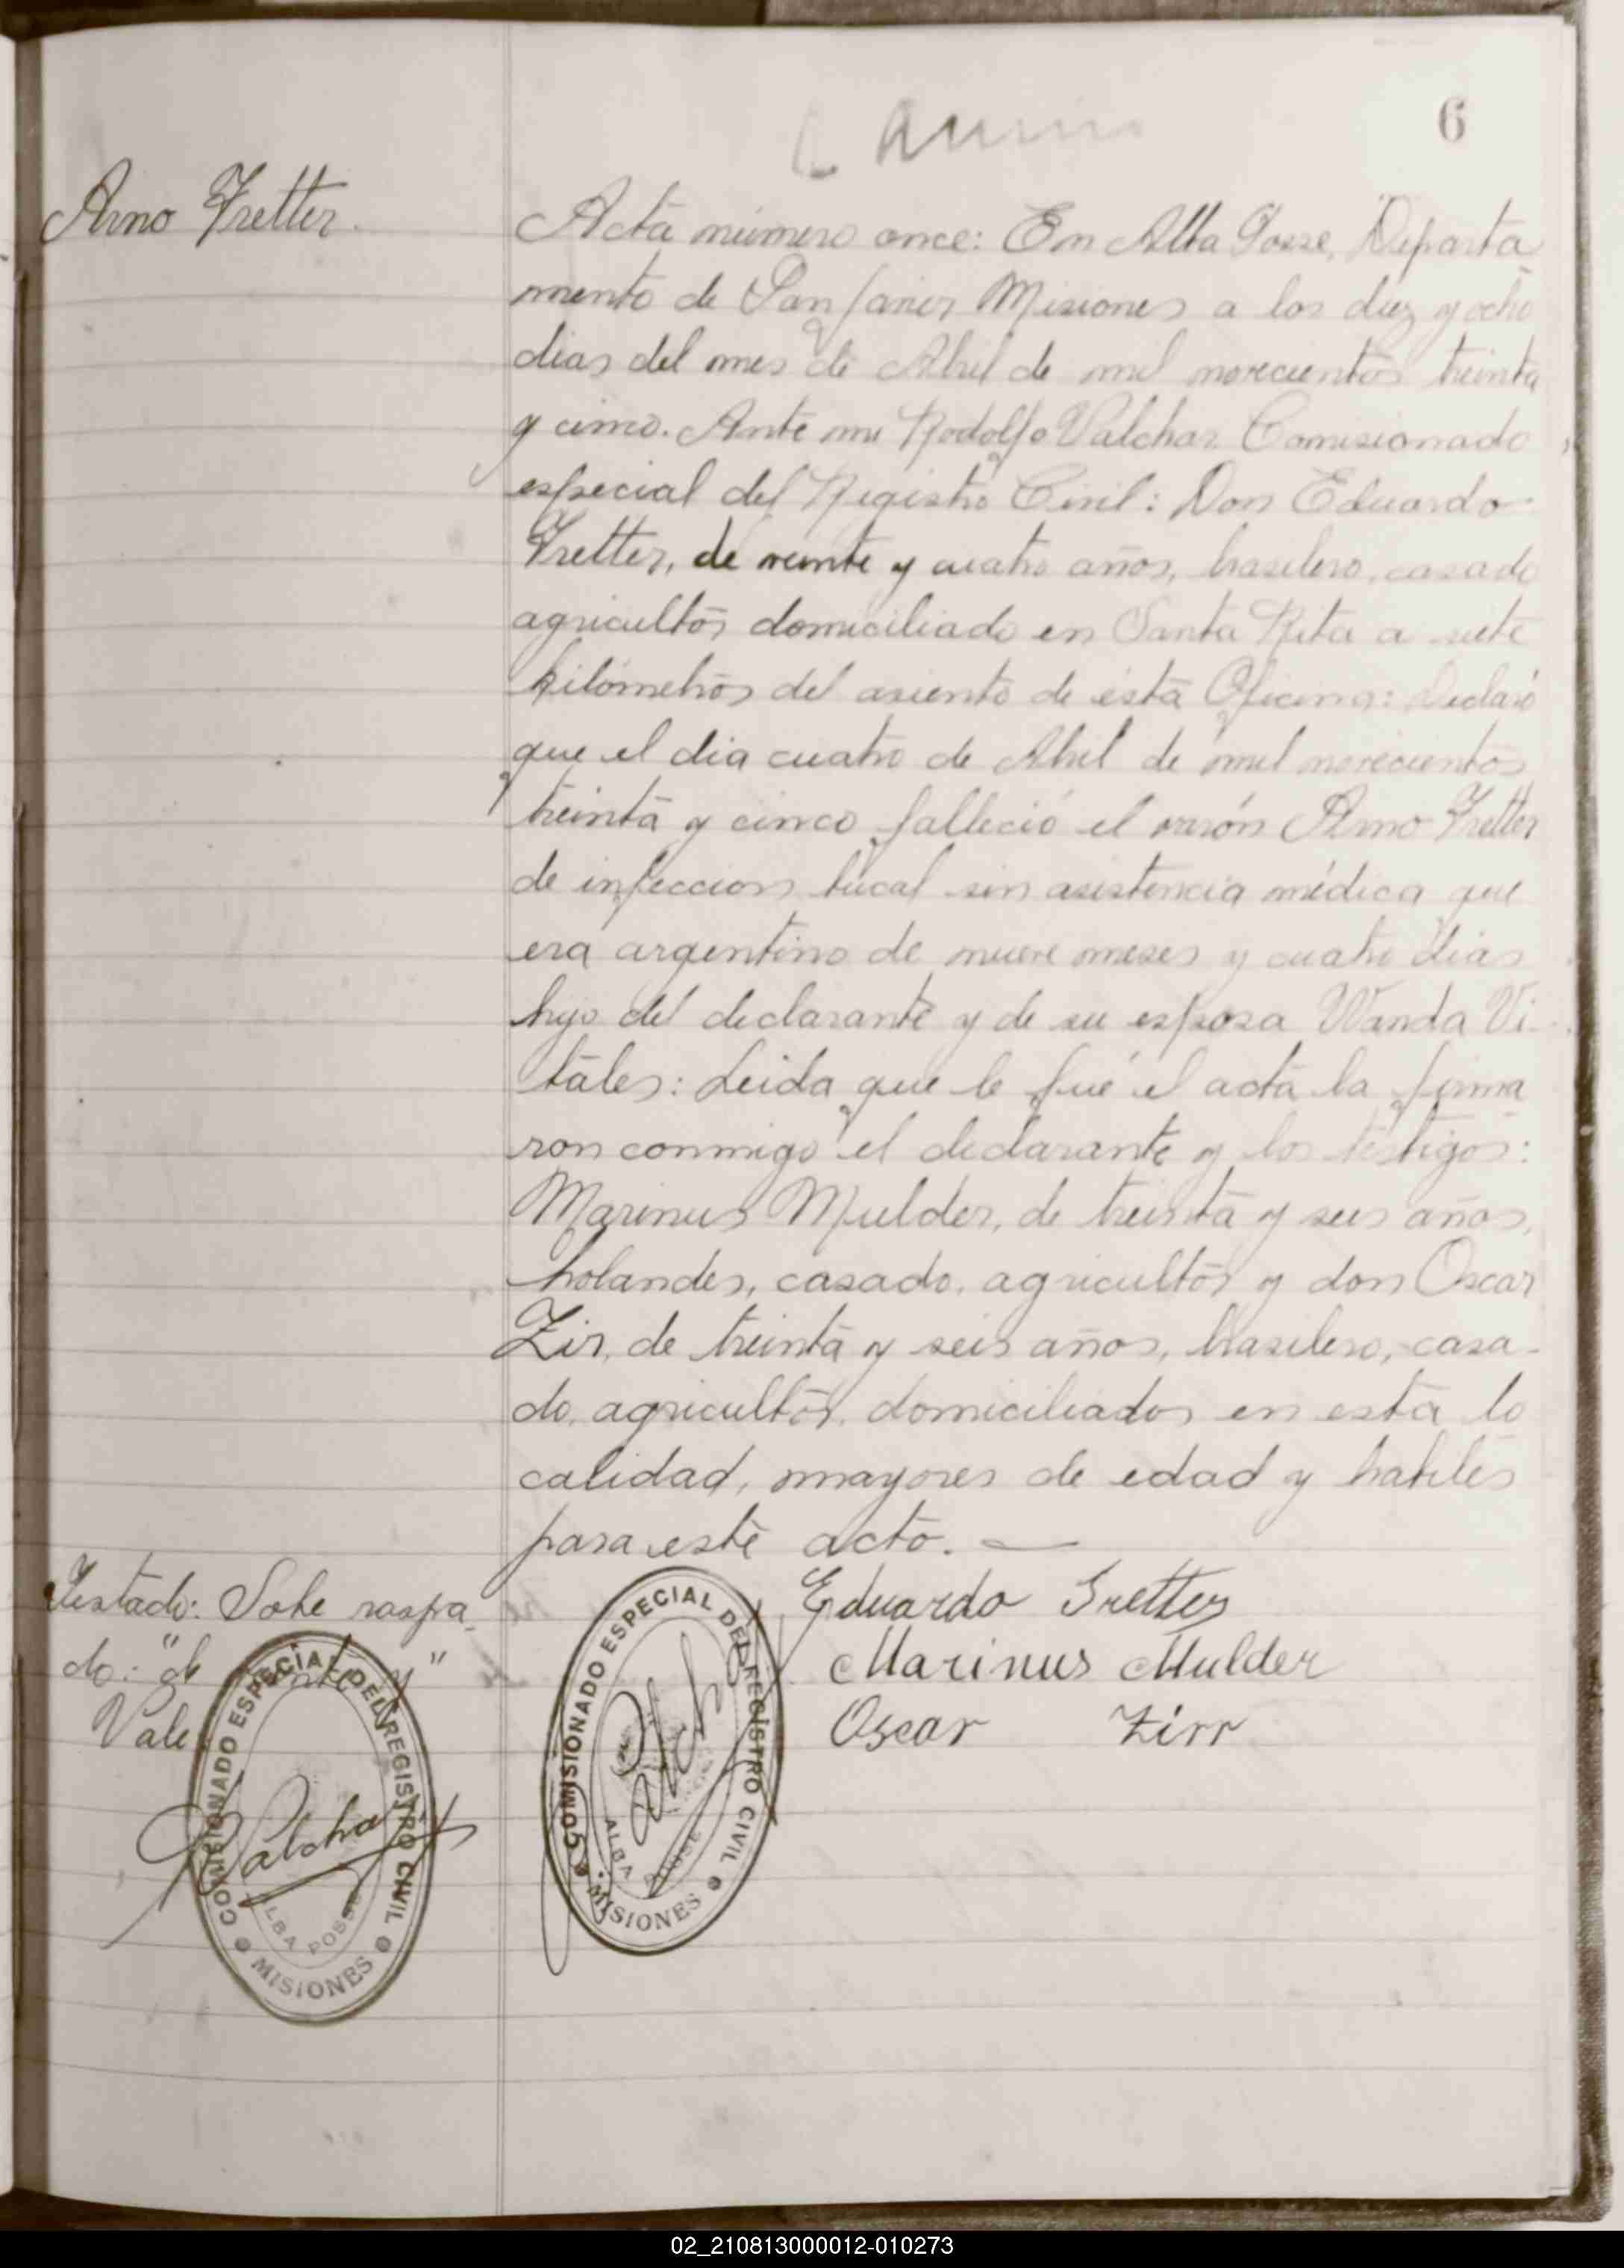 6
Arno Fretter.
Acta número once: En Alba Posse, Departa
mento de San Javier Misiones a los diez y ocho
dias del mes de Abril de mil novecientos treinta
y cinco. Ante mi Rodolfo Valchar Comisionado
especial del Registro Civil: Don Eduardo
Fretter, de veinte y cuatro años, brasilero, casado
agricultor domiciliado en Santa Rita a siete
kilómetros del asiento de esta Oficina: Declaró
que el dia cuatro de Abril de mil novecientos
treinta y cinco falleció el varón Arno Fretter
de infeccion bucal sin asistencia médica que
era argentino de nueve meses y cuatro dias
hijo del declarante y de su esposa Wanda Vi-
tales: Leida que le fué el acta la firma
ron conmigo el declarante y los testigos:
Marinus Mulder, de treinta y seis años,
holandes, casado, agricultor y don Oscar
Zir, de treinta y seis años, brasilero, casa-
do, agricultor, domiciliados en esta lo
calidad, mayores de edad y habiles
para este acto. —
Testado: Sobre raspa
do: "de veinte y"
Vale
Eduardo Fretter
Marinus Mulder
Oscar Zirr
COMISIONADO ESPECIAL DEL REGISTRO CIVIL
ALBA POSSE
MISIONES
RValchar
COMISIONADO ESPECIAL DEL REGISTRO CIVIL
ALBA POSSE
MISIONES
02_210813000012-010273